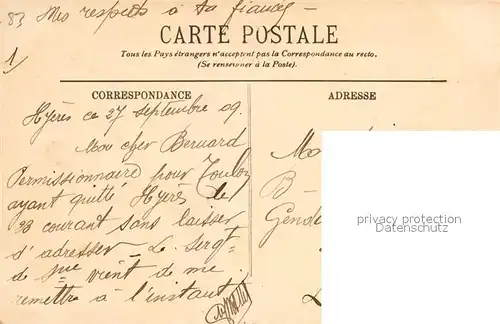 83
Mes respects à ta fiancée -
1
CARTE POSTALE
Tous les Pays étrangers n'acceptent pas la Correspondance au recto.
(Se renseigner à la Poste).
CORRESPONDANCE
ADRESSE
Hyères ce 27 septembre 09.
Mon cher Bernard
Permissionnaire pour Toulon
ayant quitté Hyères le
23 courant sans laisser
d'adresser - Le sergt-
de sme vient de me
remettre à l'instant
B-
privacy protection